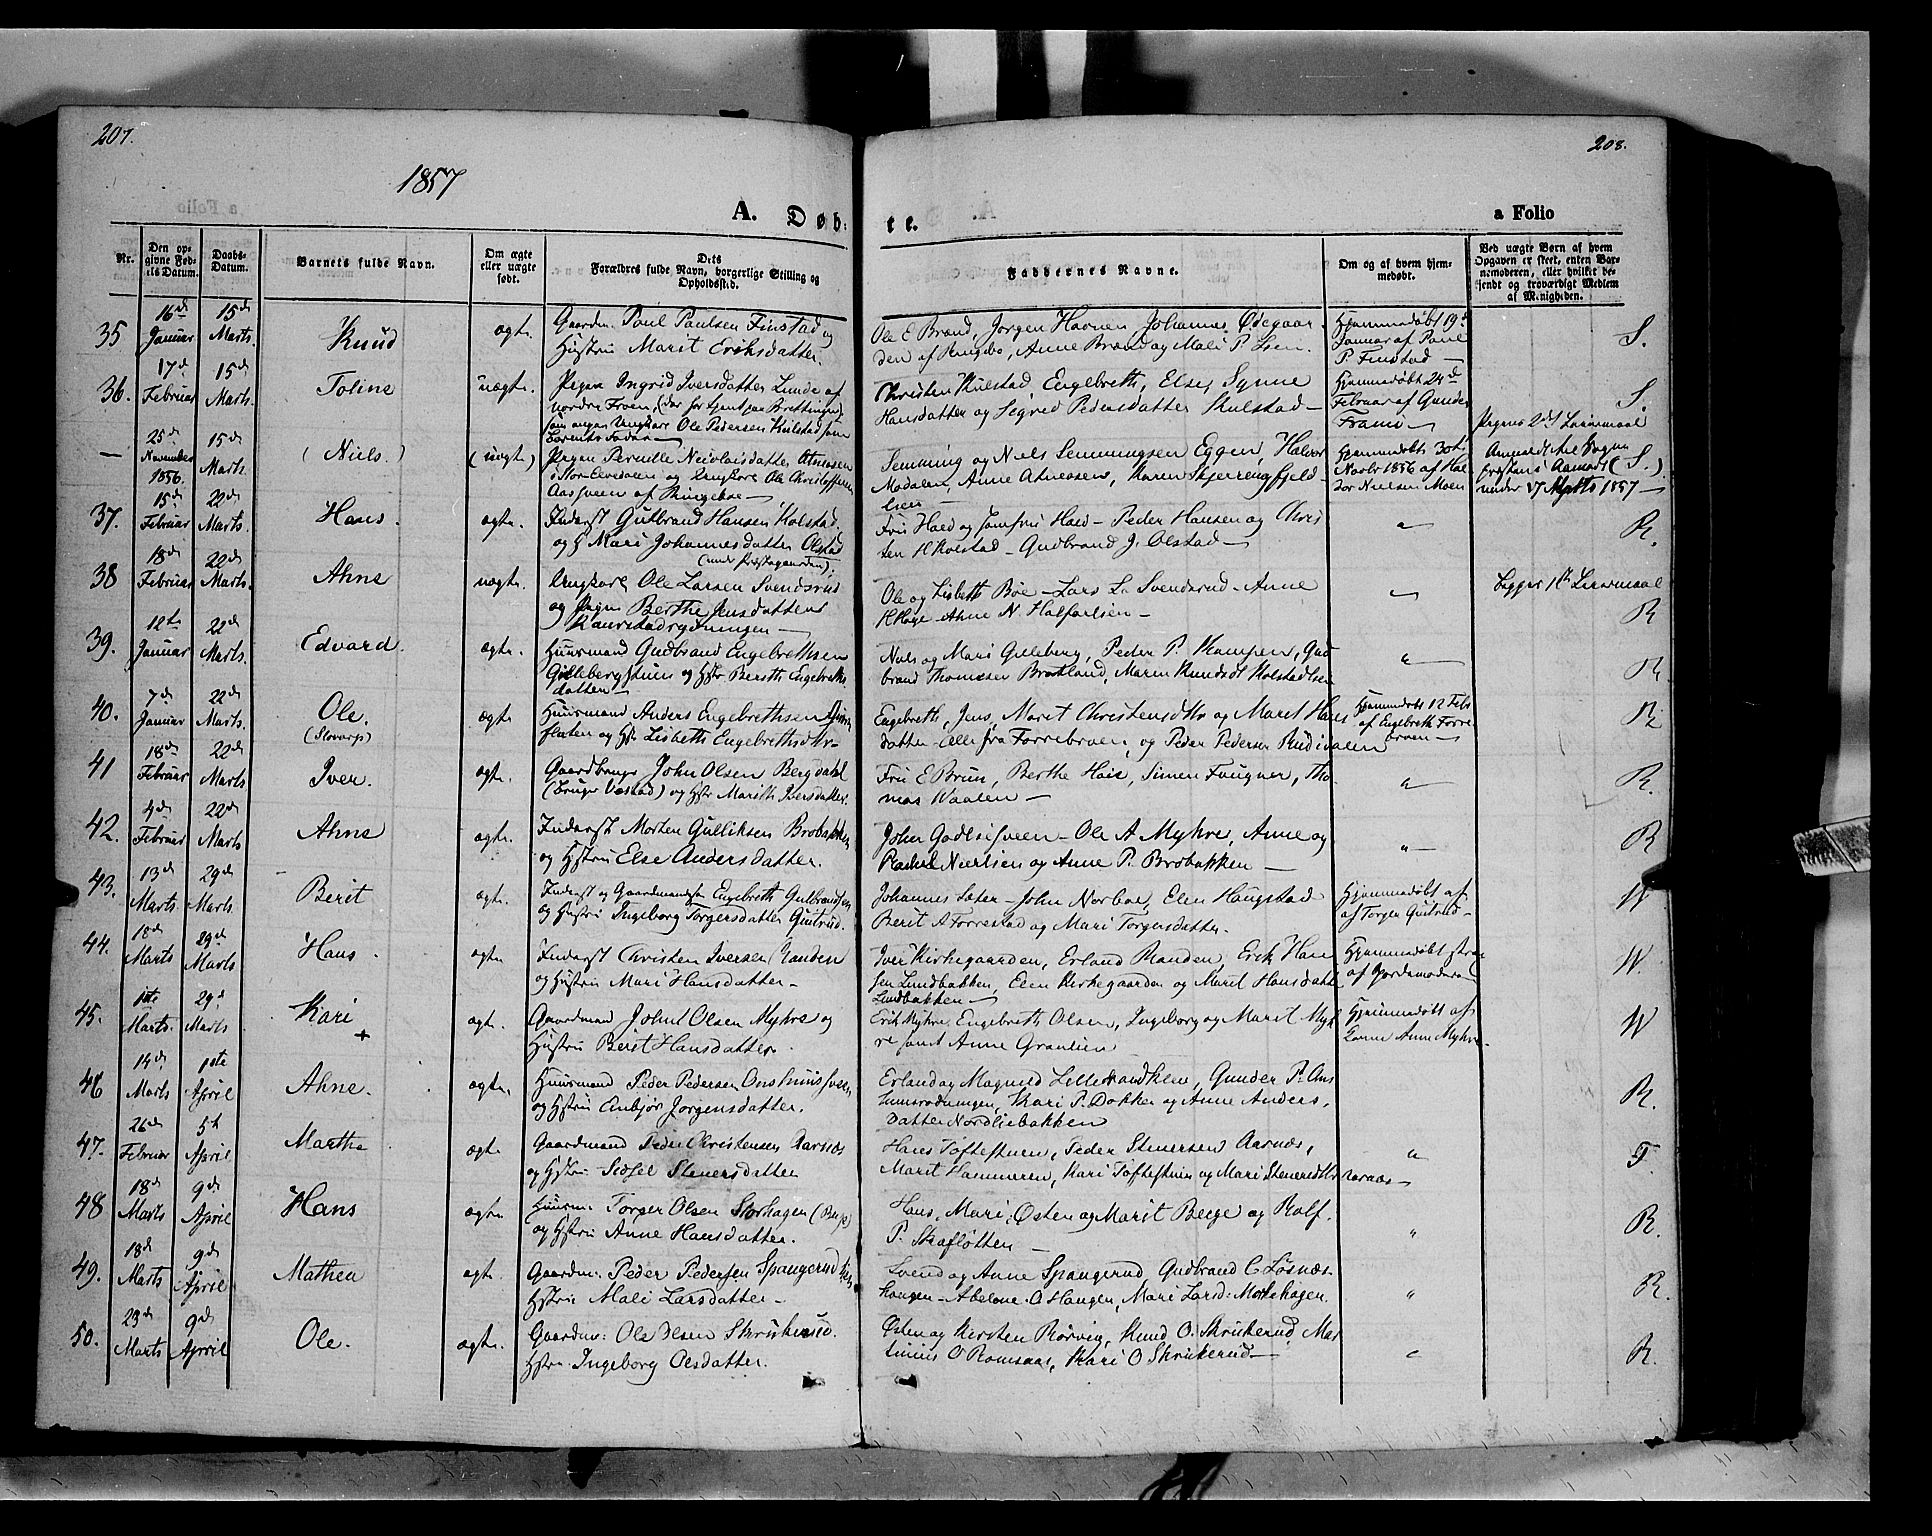 207.
208.
1857
A. Døb-
te.
a Folio
Nr.
Den op-
givne Fød-
sels Datum.
Daabs-
Datum.
Barnets fulde Navn.
Om ægte
eller uægte
født.
Dets
Forældres fulde Navn, borgerlige Stilling og
Opholdssted.
Faddernes Navne.
Om og af hvem hjem-
medøbt.
Ved uægte Børn af hvem
Opgaven er skeet, enten Bar-
nemoderen, eller hvilket be-
kjendt og troværdigt Medlem
af Menigheden.
35
16de Januar
15de Marts.
Knud
ægte.
Gaardm. Poul Paulsen Finstad og
Hustru Marit Eriksdatter
Ole E Brand, Jørgen Havnen, Johannes Ødegaar-
den af Ringebo, Anne Brand og Mali P.
Hjemmedøbt 19de
Januar af Poul
P. Finstad
S.
36.
17de Februar
15de Marts.
Toline
uægte.
Pigen Ingrid Iversdatter Lunde af
nordre Froen, (der før tjent paa
som angav Ungkarl Ole Pedersen Kulstad som
Barnets Fader
Christen Kulstad Engebreth, Else, Synne
Hansdatter og Sigrid Pedersdatter Kulstad
Hjemmedøbt 24de
Februar af Gunder
Pigens 2det Leiermaal
S.
—
25de November 1856.
15de Marts
(Niels.)
(uægte)
Pigen Pernille Nicolaisdatter
i Stor Elvedalen og Ungkarl Ole Christophersen
Aassveen af Ringeboe
Lemming og Niels Lemmingsen Eggen, Halvor
Modalen, Anne Karen Skjerengfjeld-
lien
Hjemmedøbt 30te
Novbr 1856 af Hal-
vor Nielsen Moen
under 17 Marts 1857
(S.)
37.
15de Februar
22de Marts.
Hans.
ægte.
Inderst Gulbrand Hansen Kolstad.
og H. Mari Johannesdatter Olstad
(under Præstegaarden).
Peder Hansen og Chris-
ten H Kolstad – Gudbrand J. Olstad
"
R.
38
18de Februar
22de Marts.
Ahne
uægte.
Ungkarl Ole Larsen Svendsrud
og Pigen Berthe Jensdatter
Kanrstadrydningen
Ole og Lisbeth Bøe – Lars L. Svendsrud – Anne
Ahne N. Halfarlien
"
Begges 1ste Leiermaal
R
39.
12te Januar
22de Marts.
Edvard.
ægte.
Huusmand Gudbrand Engebrethsen
Gillebergstuen og Hstr Bereth Engebrets-
datter
Niels og Mari Gilleberg, Peder P. Kampen, Gud-
brand Thomesen Bratland, Maren Knudsdt Kolstadlien
"
R.
40.
7de Januar
22de Marts.
Ole.
ægte
Huusmand Anders Engebrethsen
fleeten og Hstr. Lisbeth Engebrethsdtr
Engebreth, Jens, Maret Christensdtr og Maret Hans-
datter alle fra Forrebroen, og Peder Pedersen Rudivalen
Hjemmedøbt 12 Feb
af Engebreth Forre-
broen
R
41
18de Februar
22de Marts
Iver.
ægte.
Gaardbruger John Olsen Bergdahl
(bruger Vestad) og Hstr Marith Iversdatter.
Fru E Brun, Berthe Hois, Simen Faugner, Tho-
mas Waalen
"
R.
42.
4de Februar
22de Marts
Ahne
ægte.
Inderst Morten Gulliksen Brobakken
og Hstru Else Andersdatter.
John Godlisveen – Ole A Myhre, Anne og
Nielsen og Anne P. Brobakken
"
R
43.
13de Marts.
29de Marts.
Berit
ægte.
Inderst og Gaardmandssøn Engebreth Gulbrandsen
og Hustru Ingeborg Torgersdatter Guttrud.
Johannes Sæter – John Norboe, Elen Haugstad
Berit A Forrestad og Mari Torgersdatter.
Hjemmedøbt af
af Torger Gutrud
W
44.
18de Marts
29de Marts
Hans
ægte.
Inderst Christen Iversen Randen
og Hustru Mari Hansdatter
Iver Kirkegaarden, Erland Randen, Erik Han-
sen Lundbakken, Elen Kirkegaarden og Maret Hansdatter
Lundbakken
Hjemmedøbt strax
af Jordemoderen
W.
45.
1ste Marts.
29de Marts
Kari
+
ægte.
Gaardmand John Olsen Myhre og
Hustru Berit Hansdatter.
Erik Myhre, Engebreth Olsen, Ingeborg og Maret Myh-
re samt Anne Granlien
Hjemmedøbt af
Anne Myhre
W
46
14de Marts
1ste April
Ahne.
ægte.
Huusmand Peder Pedersen
og Hstru Anbjør Jørgensdatter.
Erland og Magnild Gunder P.
Kari P. Dokken og Anne Anders-
datter Nordliebakken
R.
47.
26de Februar
5te April
Marthe
ægte.
Gaardmand Peder Christensen Aarnæs
og Hstru Sidsel Stenersdatter
Hans Toftestuen, Peder Stenersen Aarnæs,
Marit Hammeren, Kari Toftestuen og Mari Stenersdtr Aarnæs
"
T.
48
18de Marts
9de April
Hans
ægte.
Huusm: Torger Olsen Storhagen (Berge)
og Hstru Anne Hansdatter.
Hans, Mari, Østen og Marit Berge og Rolf
P. Skafløtten
"
R.
49.
18de Marts
9de April
Mathea
ægte.
Gaardm: Peder Pedersen Spangerud
Hstru Mali Larsdatter
Svend og Anne Spangerud, Gudbrand C Løsnæs-
haugen – Abelone O Haugen, Mari Larsd: Morkehagen.
"
R.
50.
23de Marts
9de April
Ole.
ægte.
Gaardm: Ole Olsen Skrukerud.
Hstru Ingeborg Olsdatter.
Østen og Kirsten Rørvig, Knud O. Skrukerud, Mar-
Romsaas, Kari O Skrukerud
"
R.